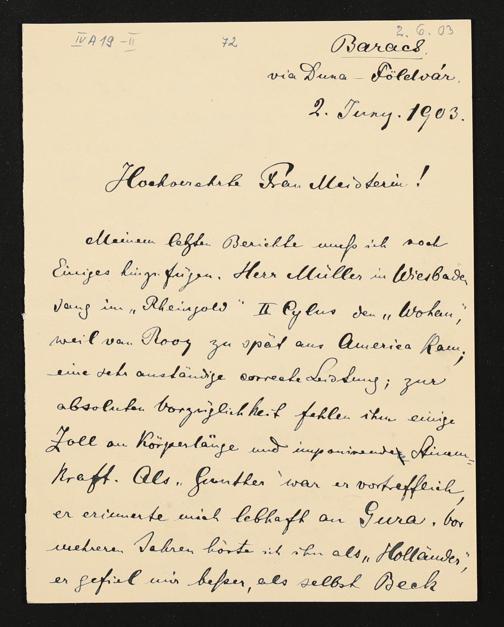 IV A 19 - II 72 2. 6. 03
Baracs.
via Duna - Földvár.
2. Juny. 1903.
Hochverehrte Frau Meisterin!
Meinem letzten Berichte muß ich noch
Einiges hinzufügen. Herr Müller in Wiesbaden
sang im „Rheingold" II Cylus den „Wotan",
weil van Rooy zu spät aus America kam;
eine sehr anständige correcte Leistung; zur
absoluten Vorzüglichkeit fehlen ihm einige
Zoll an Körperlänge und imponirende Stimm-
kraft. Als „Gunther" war er vortrefflich,
er erinnerte mich lebhaft an Gura. Vor
mehreren Jahren hörte ich ihn als „Holländer",
er gefiel mir beßer, als selbst Beck